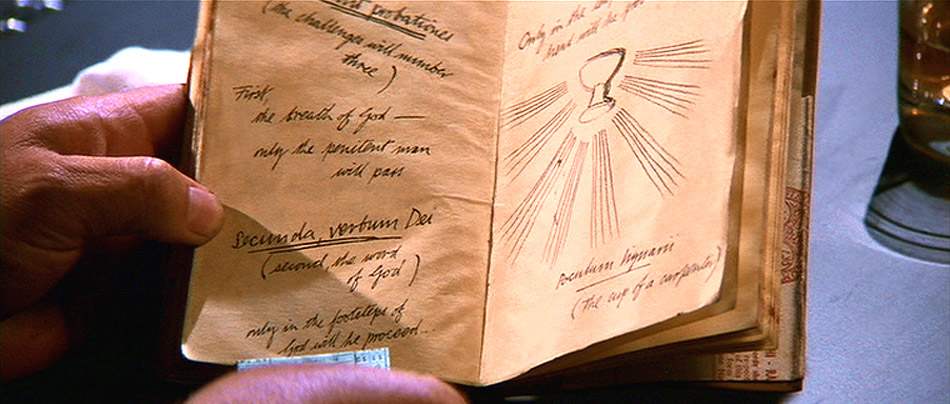 probationes
(the challenges will number
three)
First,
the breath of God —
only the penitent man
will pass
Secunda, verbum Dei
(second, the word
of God)
only in the footsteps of
God will he proceed...
Only in the
hand will he
poculum lignarii
(The cup of a carpenter)